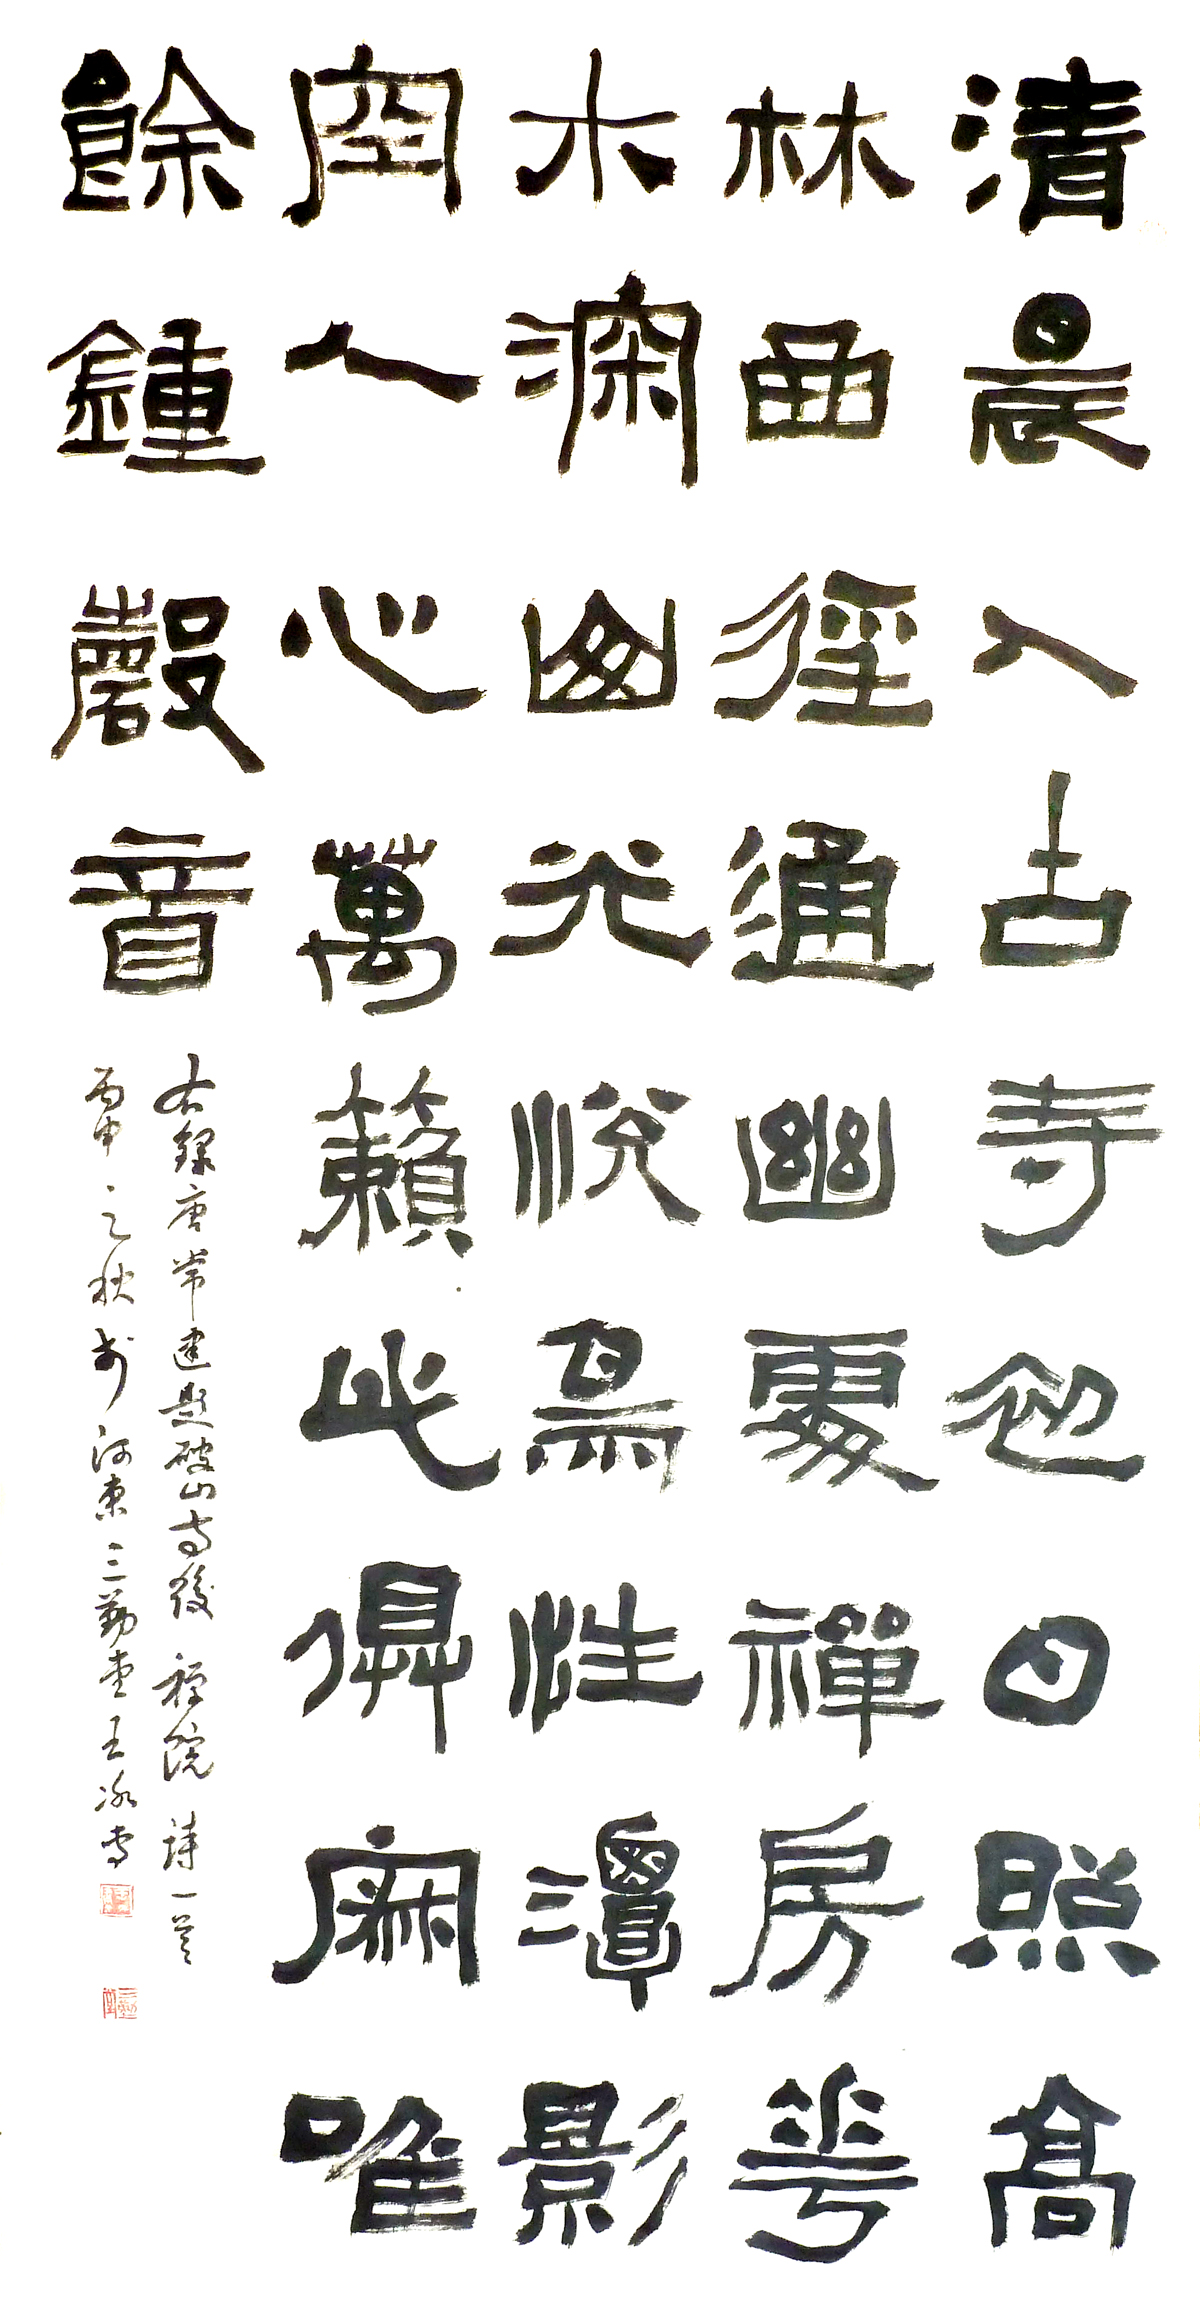 清晨入古寺初日照高
林曲徑通幽處禪房華
木深山光悅鳥性潭影
空人心萬籟此俱寂唯
餘鍾磬音
右錄唐常建題破山寺後禪院詩一首
丙申之秋於河東三勤堂王冰書